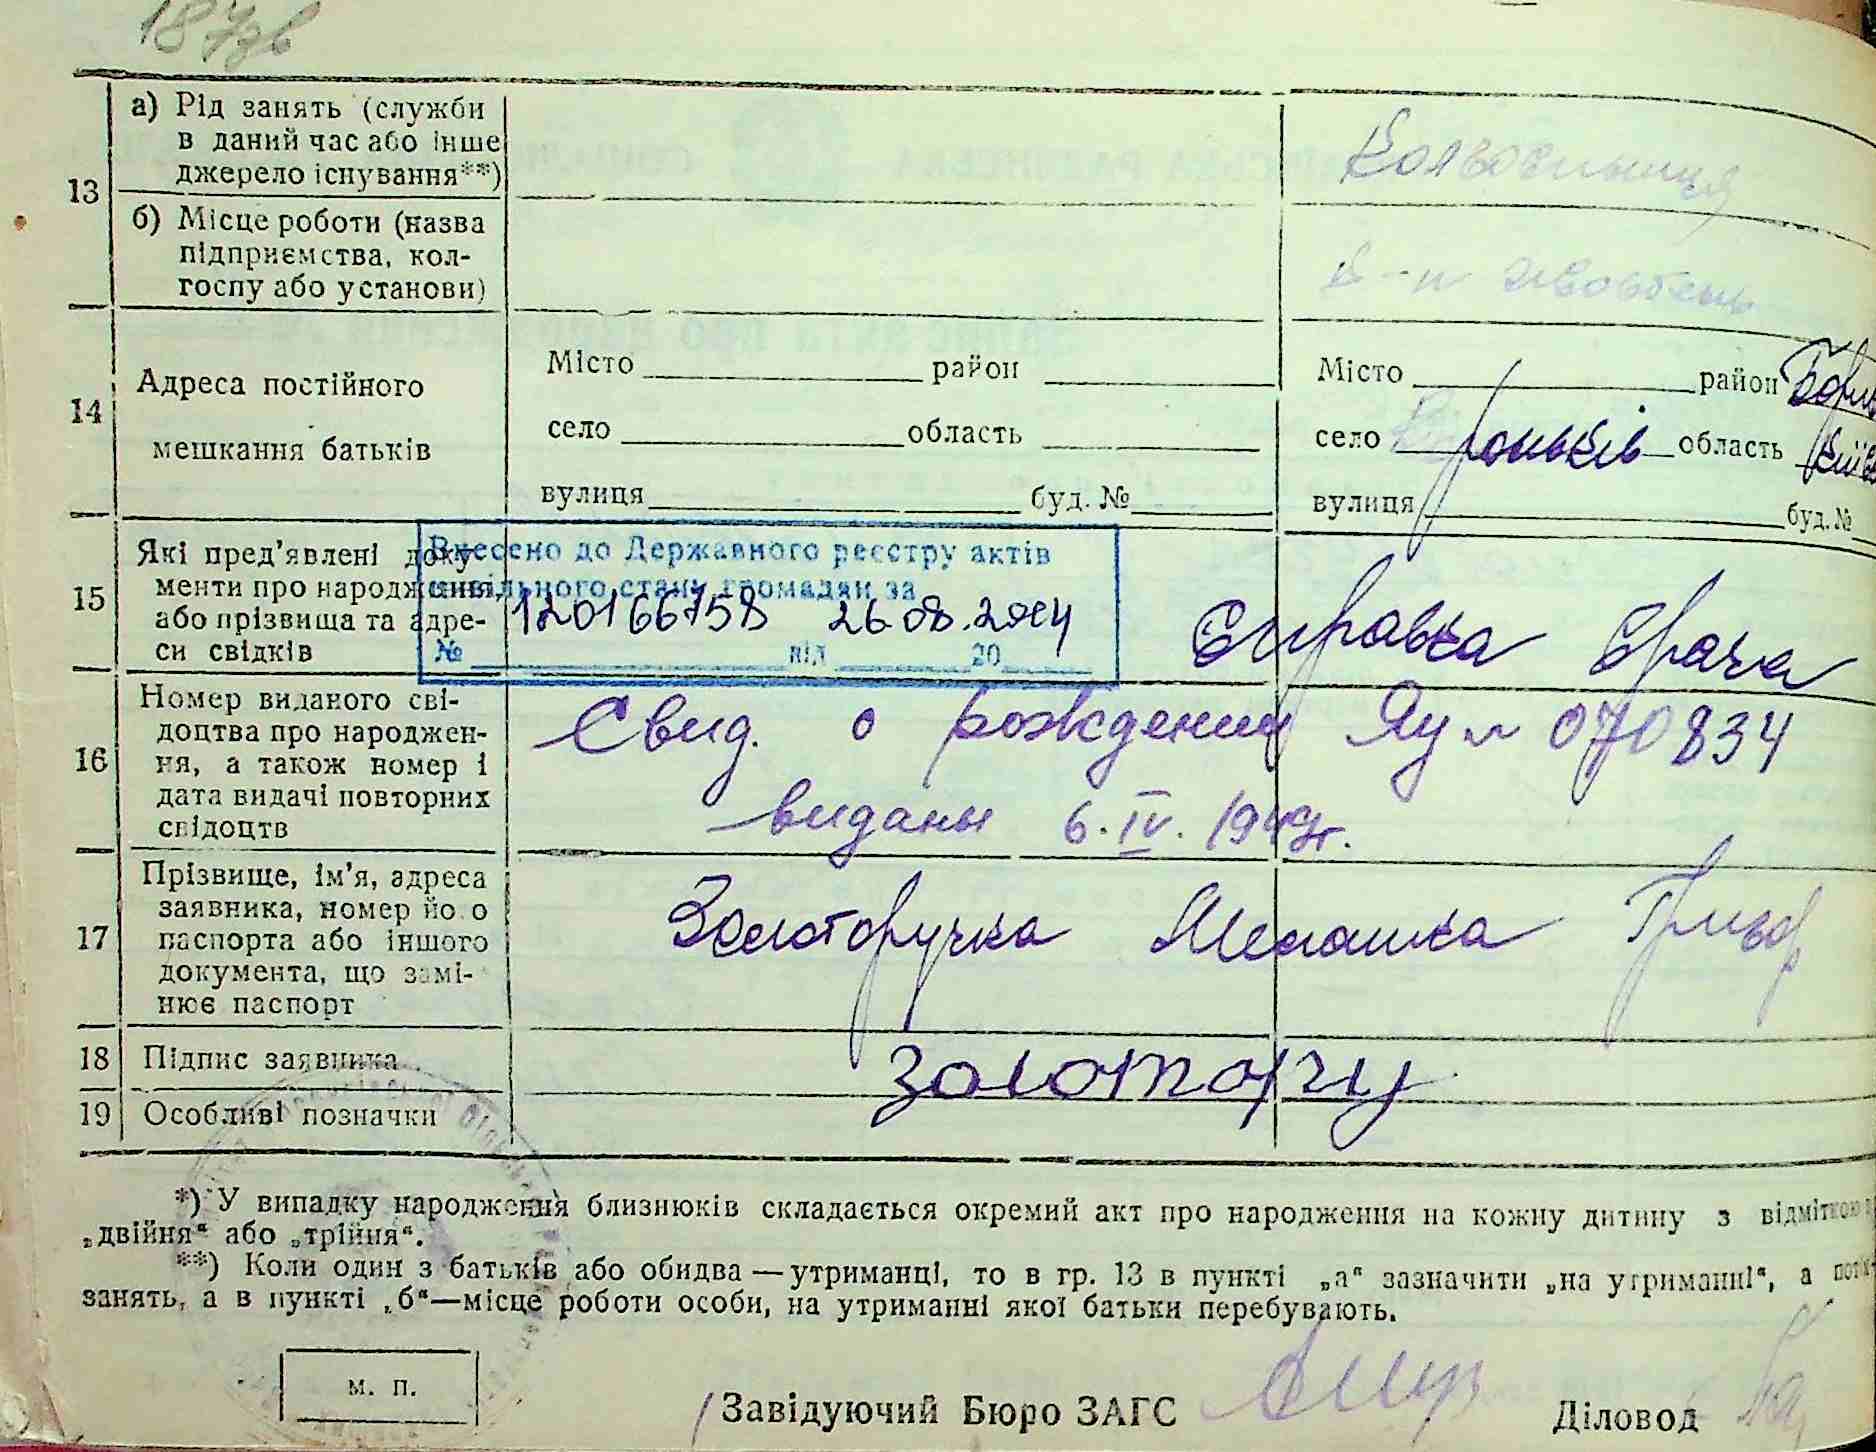 187зв
13
а) Рід занять (служби
в даний час або інше
джерело існування**)
Колгоспниця
б) Місце роботи (назва
підприємства, кол-
госпу або установи)
к-п Жовтень
14
Адреса постійного
мешкання батьків
Місто район
село область
вулиця буд. №
Місто район
село Вороньків область
вулиця буд. №
15
Які пред’явлені доку-
менти про народження,
або прізвища та адре-
си свідків
Внесено до Державного реєстру актів
цивільного стану громадян за
120166758 26.08.2014
№ від 20
Справка врача
16
Номер виданого сві-
доцтва про народжен-
ня, а також номер і
дата видачі повторних
свідоцтв
Свид. о рождении № 070834
виданы 6.IV.1949г.
17
Прізвище, ім’я, адреса
заявника, номер його
паспорта або іншого
документа, що замі-
нює паспорт
Золоторучка Мелашка Григор
18
Підпис заявника
19
Особливі позначки
*) У випадку народження близнюків складається окремий акт про народження на кожну дитину з відміткою
„двійня“ або „трійня“.
**) Коли один з батьків або обидва — утриманці, то в гр. 13 в пункті „а“ зазначити „на утриманні“, а
занять, а в пункті „б“—місце роботи особи, на утриманні якої батьки перебувають.
м. п.
Завідуючий Бюро ЗАГС
Діловод